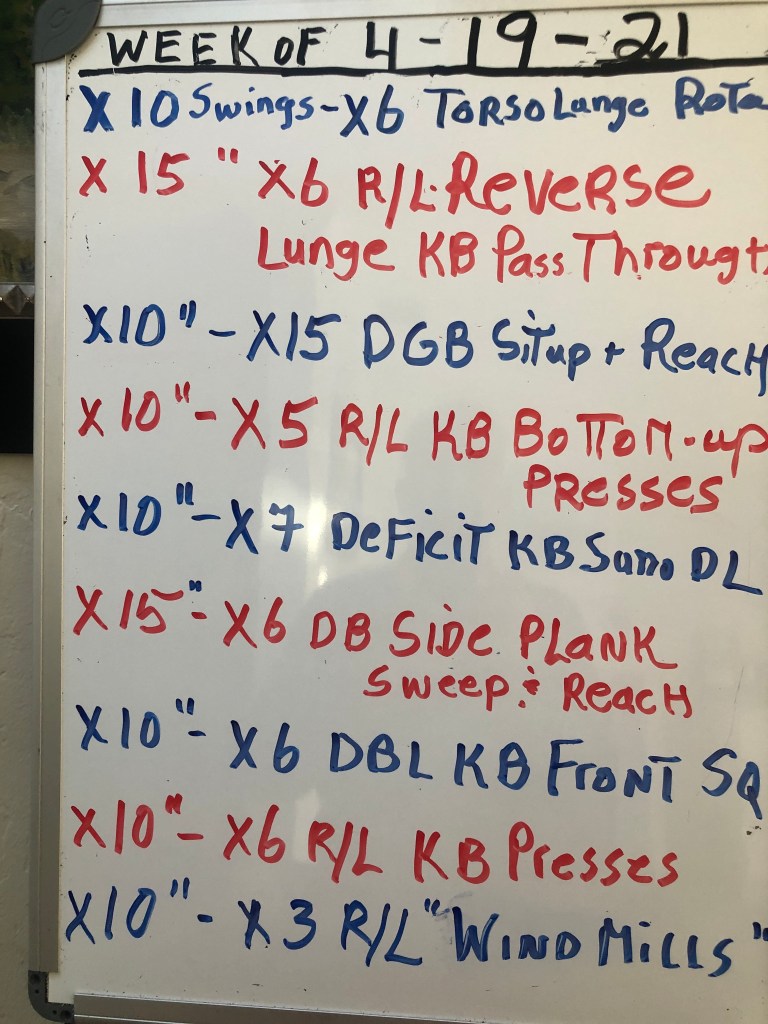 WEEK OF 4-19-21
X10 Swings-X6 TORSO Lunge Rota
X 15 " X6 R/L Reverse
Lunge KB Pass Through
X10"-X15 DGB Situp + Reach
X10"-X5 R/L KB BOTTOM-up
PRESSES
X10"-X7 DeFiciT KB Sumo DL
X15"-X6 DB SIDE PLANK
Sweep & Reach
X10"-X6 DBL KB FRONT SQ
X10"-X6 R/L KB Presses
X10"-X3 R/L "WIND Mills"